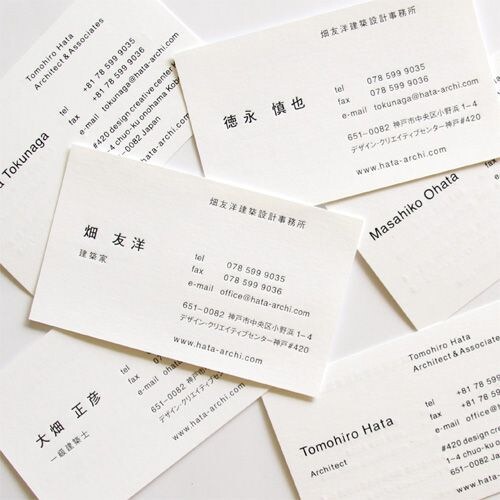 Tomohiro Hata
Architect & Associates
+81 78 599 9035
+81 78 599 9036
tokunaga@hata-archi.com
#420 design creative center
4-1 chuo-ku onohama Kobe
51-0082 Japan
www.hata-archi.com
Tokunaga
畑友洋建築設計事務所
徳永 慎也
tel 078 599 9035
fax 078 599 9036
e-mail tokunaga@hata-archi.com
651-0082 神戸市中央区小野浜1-4
デザイン・クリエイティブセンター神戸#420
www.hata-archi.com
Masahiko Ohata
畑友洋建築設計事務所
畑 友洋
建築家
tel 078 599 9035
fax 078 599 9036
e-mail office@hata-archi.com
651-0082 神戸市中央区小野浜1-4
デザイン・クリエイティブセンター神戸#420
www.hata-archi.com
大畑 正彦
一級建築士
tel
fax
e-mail
651-0082 神戸市
デザイン・クリエイティブセン
www.hata-archi.com
Tomohiro Hata
Architect & Associates
Tomohiro Hata
Architect
tel +81 78
fax +81 78
e-mail office@
#420 design crea
1-4 chuo-ku onoh
651-0082 Japan
www.hata-arc